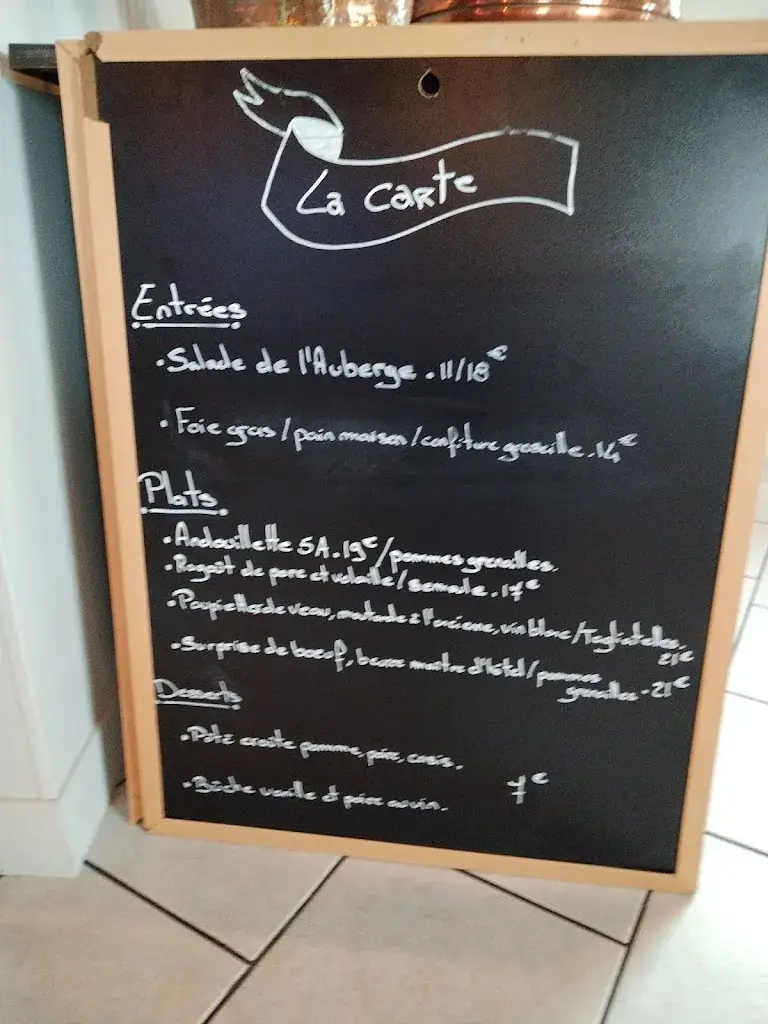 La carte
Entrées
• Salade de l'Auberge . 11/18€
• Foie gras / pain maison / confiture groseille . 14€
Plats
• Andouillette 5A . 19€ / pommes grenailles.
• Ragoût de porc et volaille / semoule . 17€
• Paupiettes de veau, moutarde à l'ancienne, vin blanc / Tagliatelles.
21€
• Surprise de boeuf, beurre maître d'hôtel / pommes
grenailles - 21€
Desserts
• Pâté croûte pomme, poire, cassis.
7€
• Bûche vanille et poire au vin.